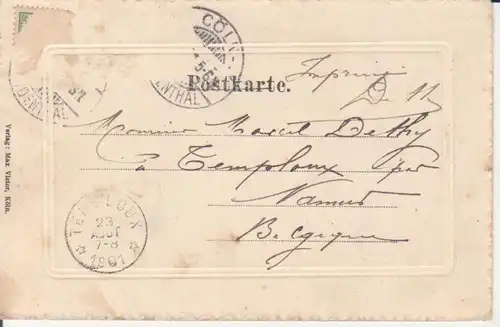 CÖLN-
5-6
LINDENTHAL
Postkarte.
Imprimé
Monsieur Marcel Dethy
à Temploux par
Namur
Belgique
Verlag: Max Vieler, Köln.
TEMPLOUX
23
AOUT
7-8
1901